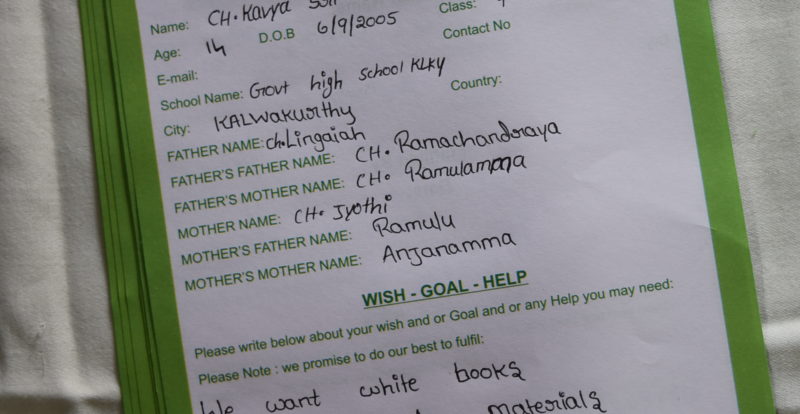 Name: CH. Kavya Class:
Age: 14 D.O.B 6/9/2005 Contact No
E-mail:
School Name: Govt high school KLKY
City: KALWAKURTHY Country:
FATHER NAME: ch. Lingaiah
FATHER'S FATHER NAME: CH. Ramachandraya
FATHER'S MOTHER NAME: CH. Ramulamma
MOTHER NAME: CH. Jyothi
MOTHER'S FATHER NAME: Ramulu
MOTHER'S MOTHER NAME: Anjanamma
WISH - GOAL - HELP
Please write below about your wish and or Goal and or any Help you may need:
Please Note : we promise to do our best to fulfil:
We want white books
materials